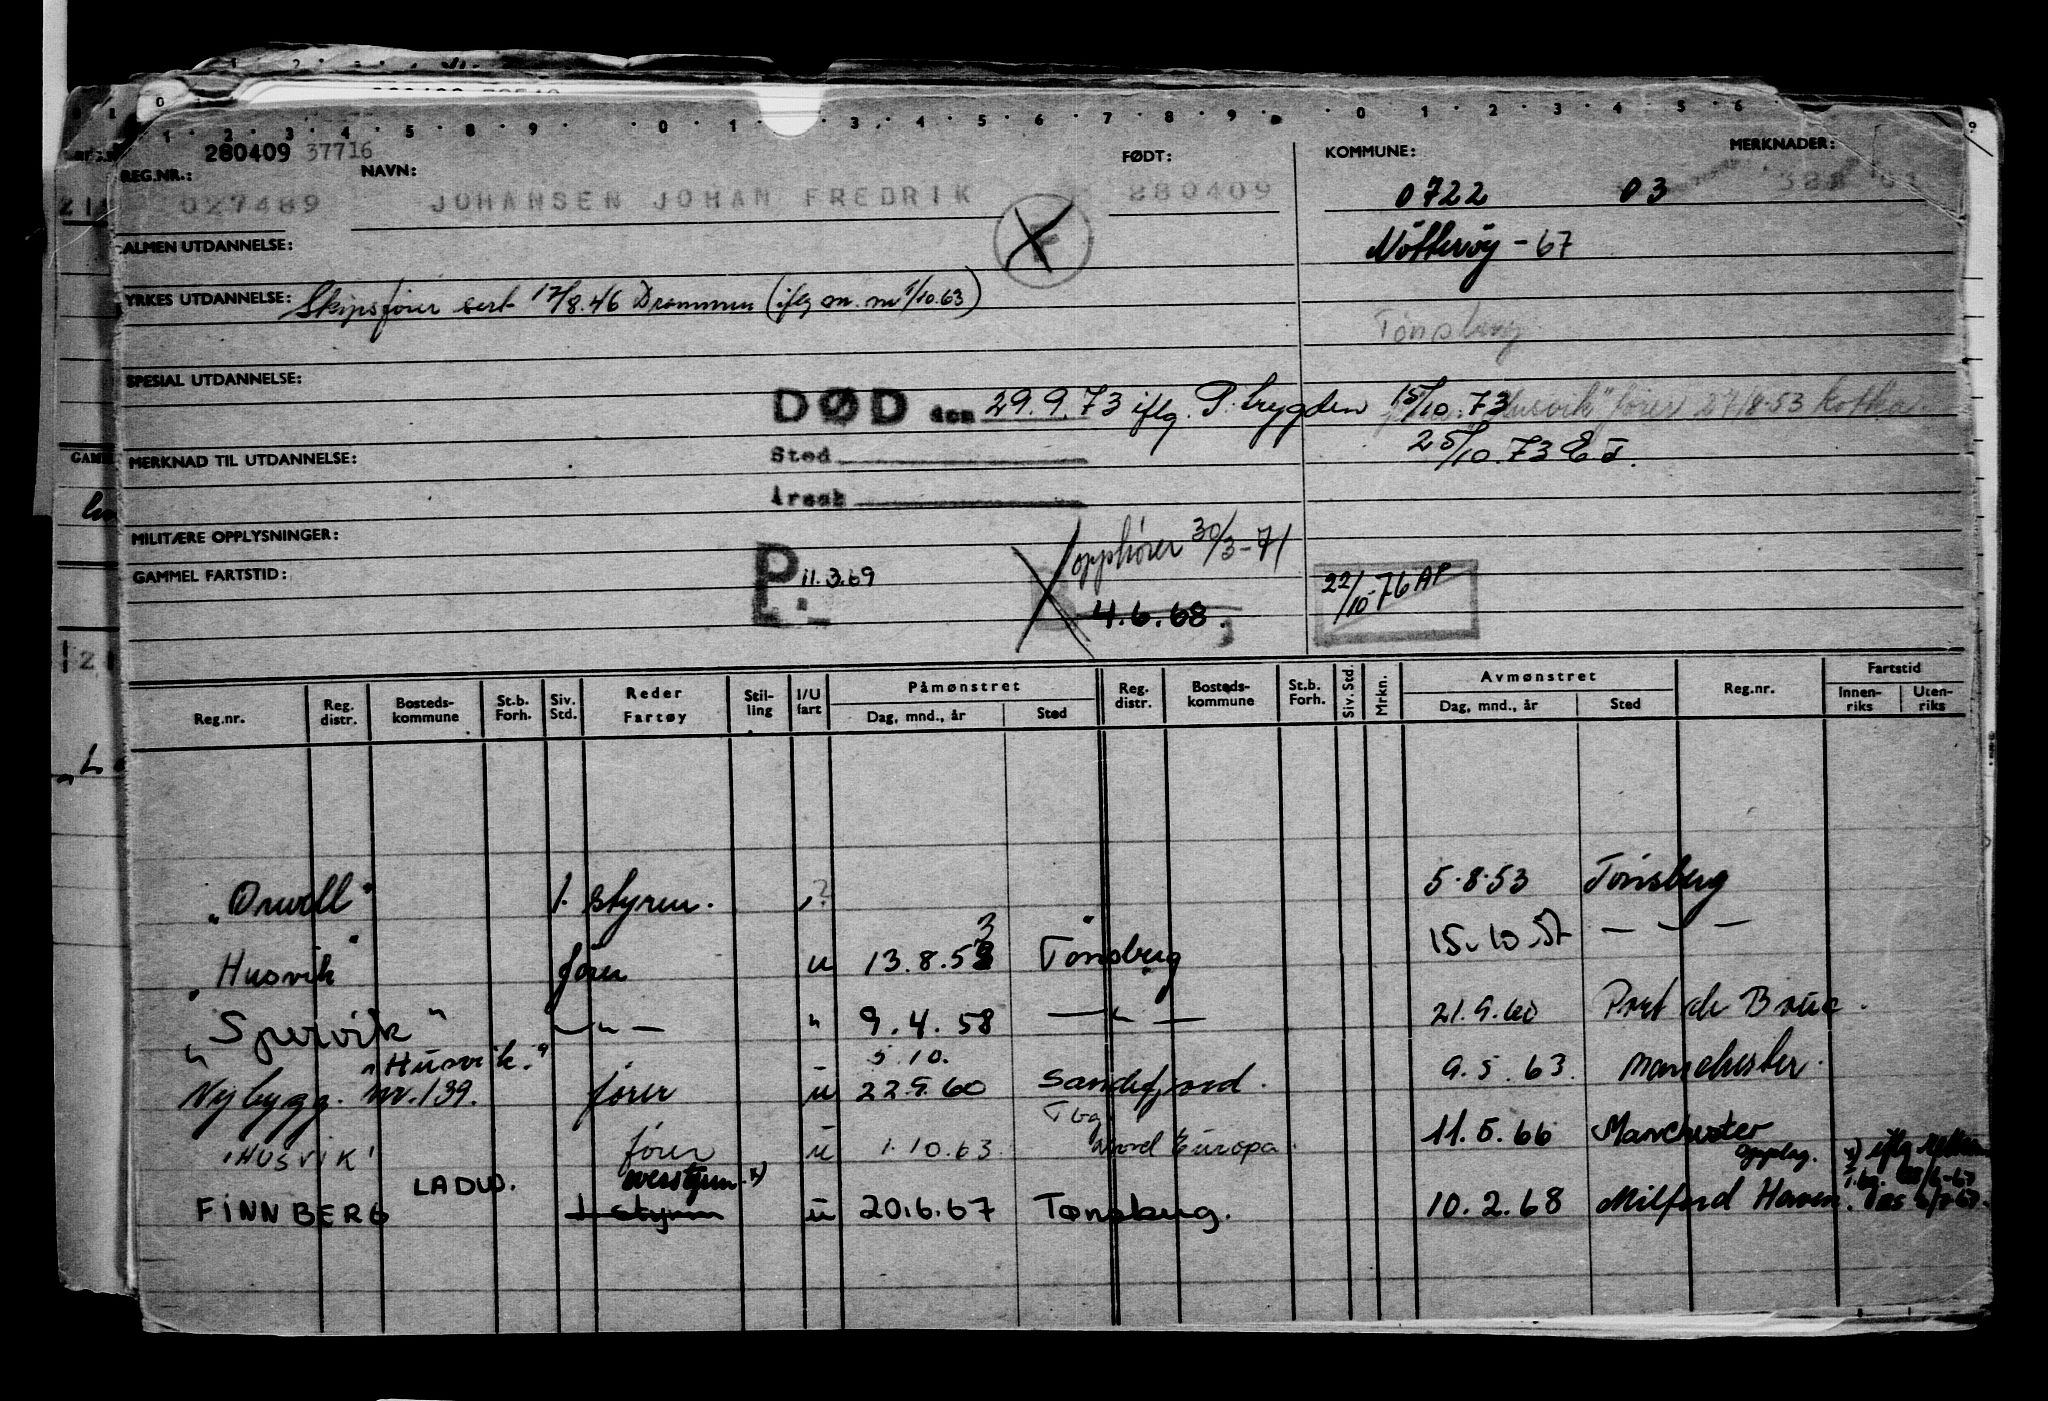 280409 37716
REG.NR.: NAVN: FØDT: KOMMUNE: MERKNADER:
027489 JOHANSEN JOHAN FREDRIK 280409 0722 03
F
ALMEN UTDANNELSE: Nötteröy - 67
YRKES UTDANNELSE: Skipsfører sert 17/8.46 Drammen (iflg m.m 1/10.63)
Tønsberg
SPESIAL UTDANNELSE:
DØD den 29.9.73 iflg. P. trygden 15/10.73
"Husvik" fører 27/8-53 Kotka
25/10.73 EJ.
MERKNAD TIL UTDANNELSE: Sted
Årsak
MILITÆRE OPPLYSNINGER:
opphører 30/3-71
GAMMEL FARTSTID: P 11.3.69
22/10-76 AP
4.6.68.
Reg.nr. Reg. distr. Bosteds-kommune St.b. Forh. Siv. Std. Reder Fartøy Stil-ling I/U fart Påmønstret Dag, mnd., år Sted Reg. distr. Bosteds-kommune St.b. Forh. Siv. Std. Mrkn. Avmønstret Dag, mnd., år Sted Reg.nr. Fartstid Innen-riks Uten-riks
"Orwell" 1. styrm. ? 5.8.53 Tønsberg
"Husvik" fører u 13.8.53 Tønsberg 15.10.57 — " —
"Spervik" — " — " 9.4.58 — " — 21.9.60 Port de Bouc.
"Husvik." 5.10.
Nybygg. nr. 139. fører u 22.9.60 Sandefjord. 9.5.63. Manchester.
Tbg
"HUSVIK" fører u 1.10.63 Nord Europa. 11.5.66 Manchester
Opplag.
LADW. overstyrm. x)
FINNBERG 1 styrm u 20.6.67 Tønsberg. 10.2.68 Milford Haven.
x) iflg